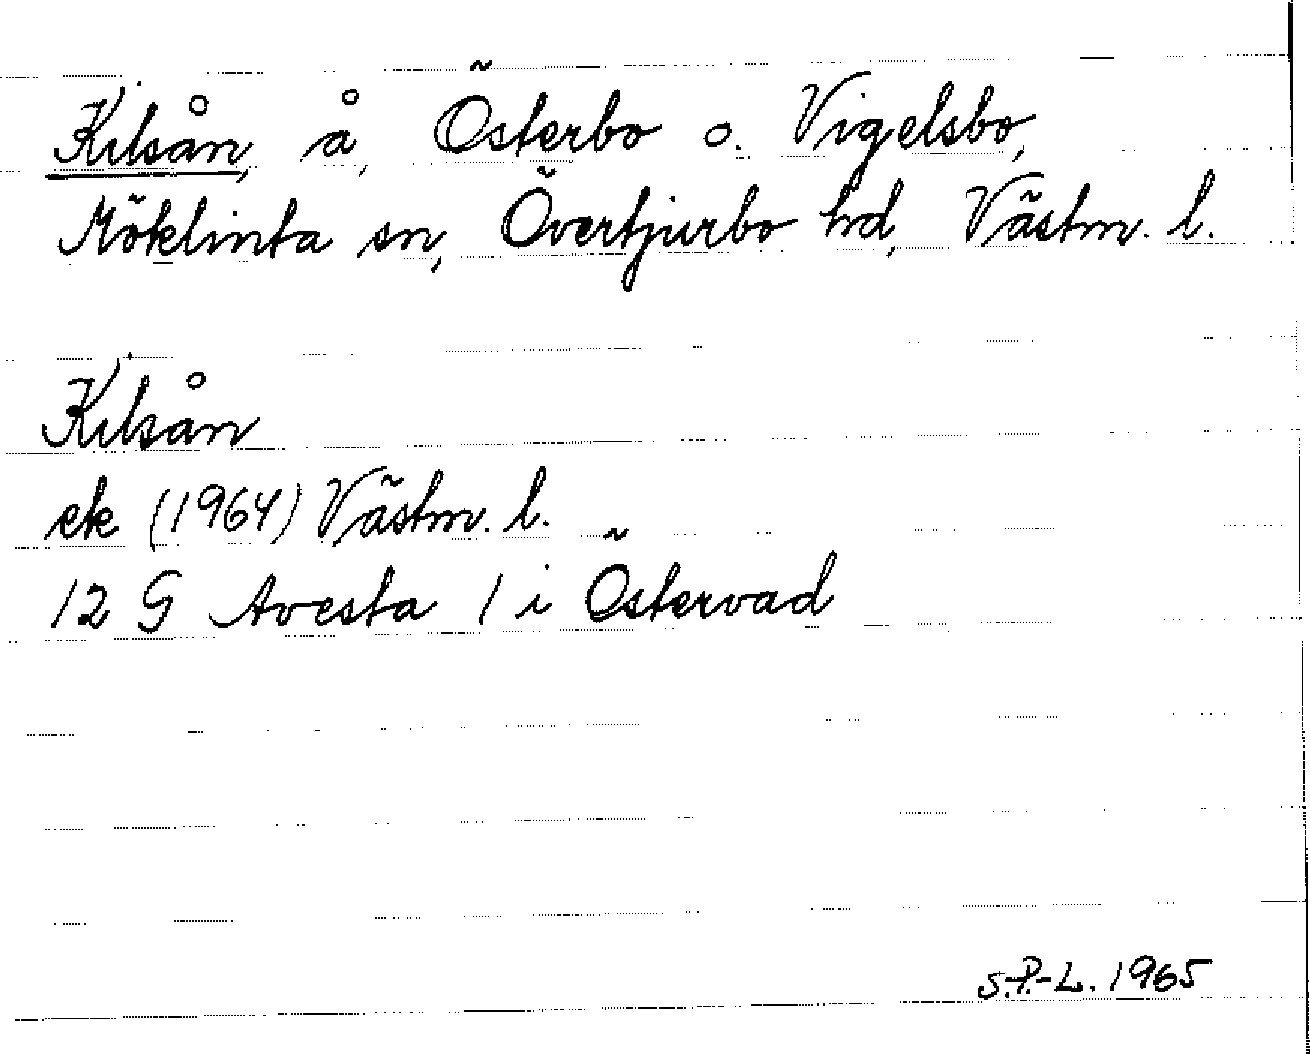 Kilsån, å, Österbo o. Vigelsbo,
Möklinta sn, Övertjurbo hd, Västm. l.
Kilsån
ek (1964) Västm. l.
12 G Avesta 1 i Östervad
S.P.-L. 1965